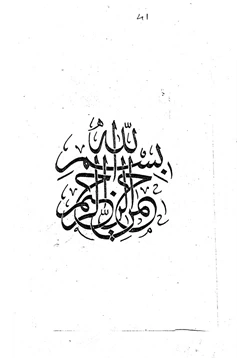 41
بسم الله الرحمن الرحيم